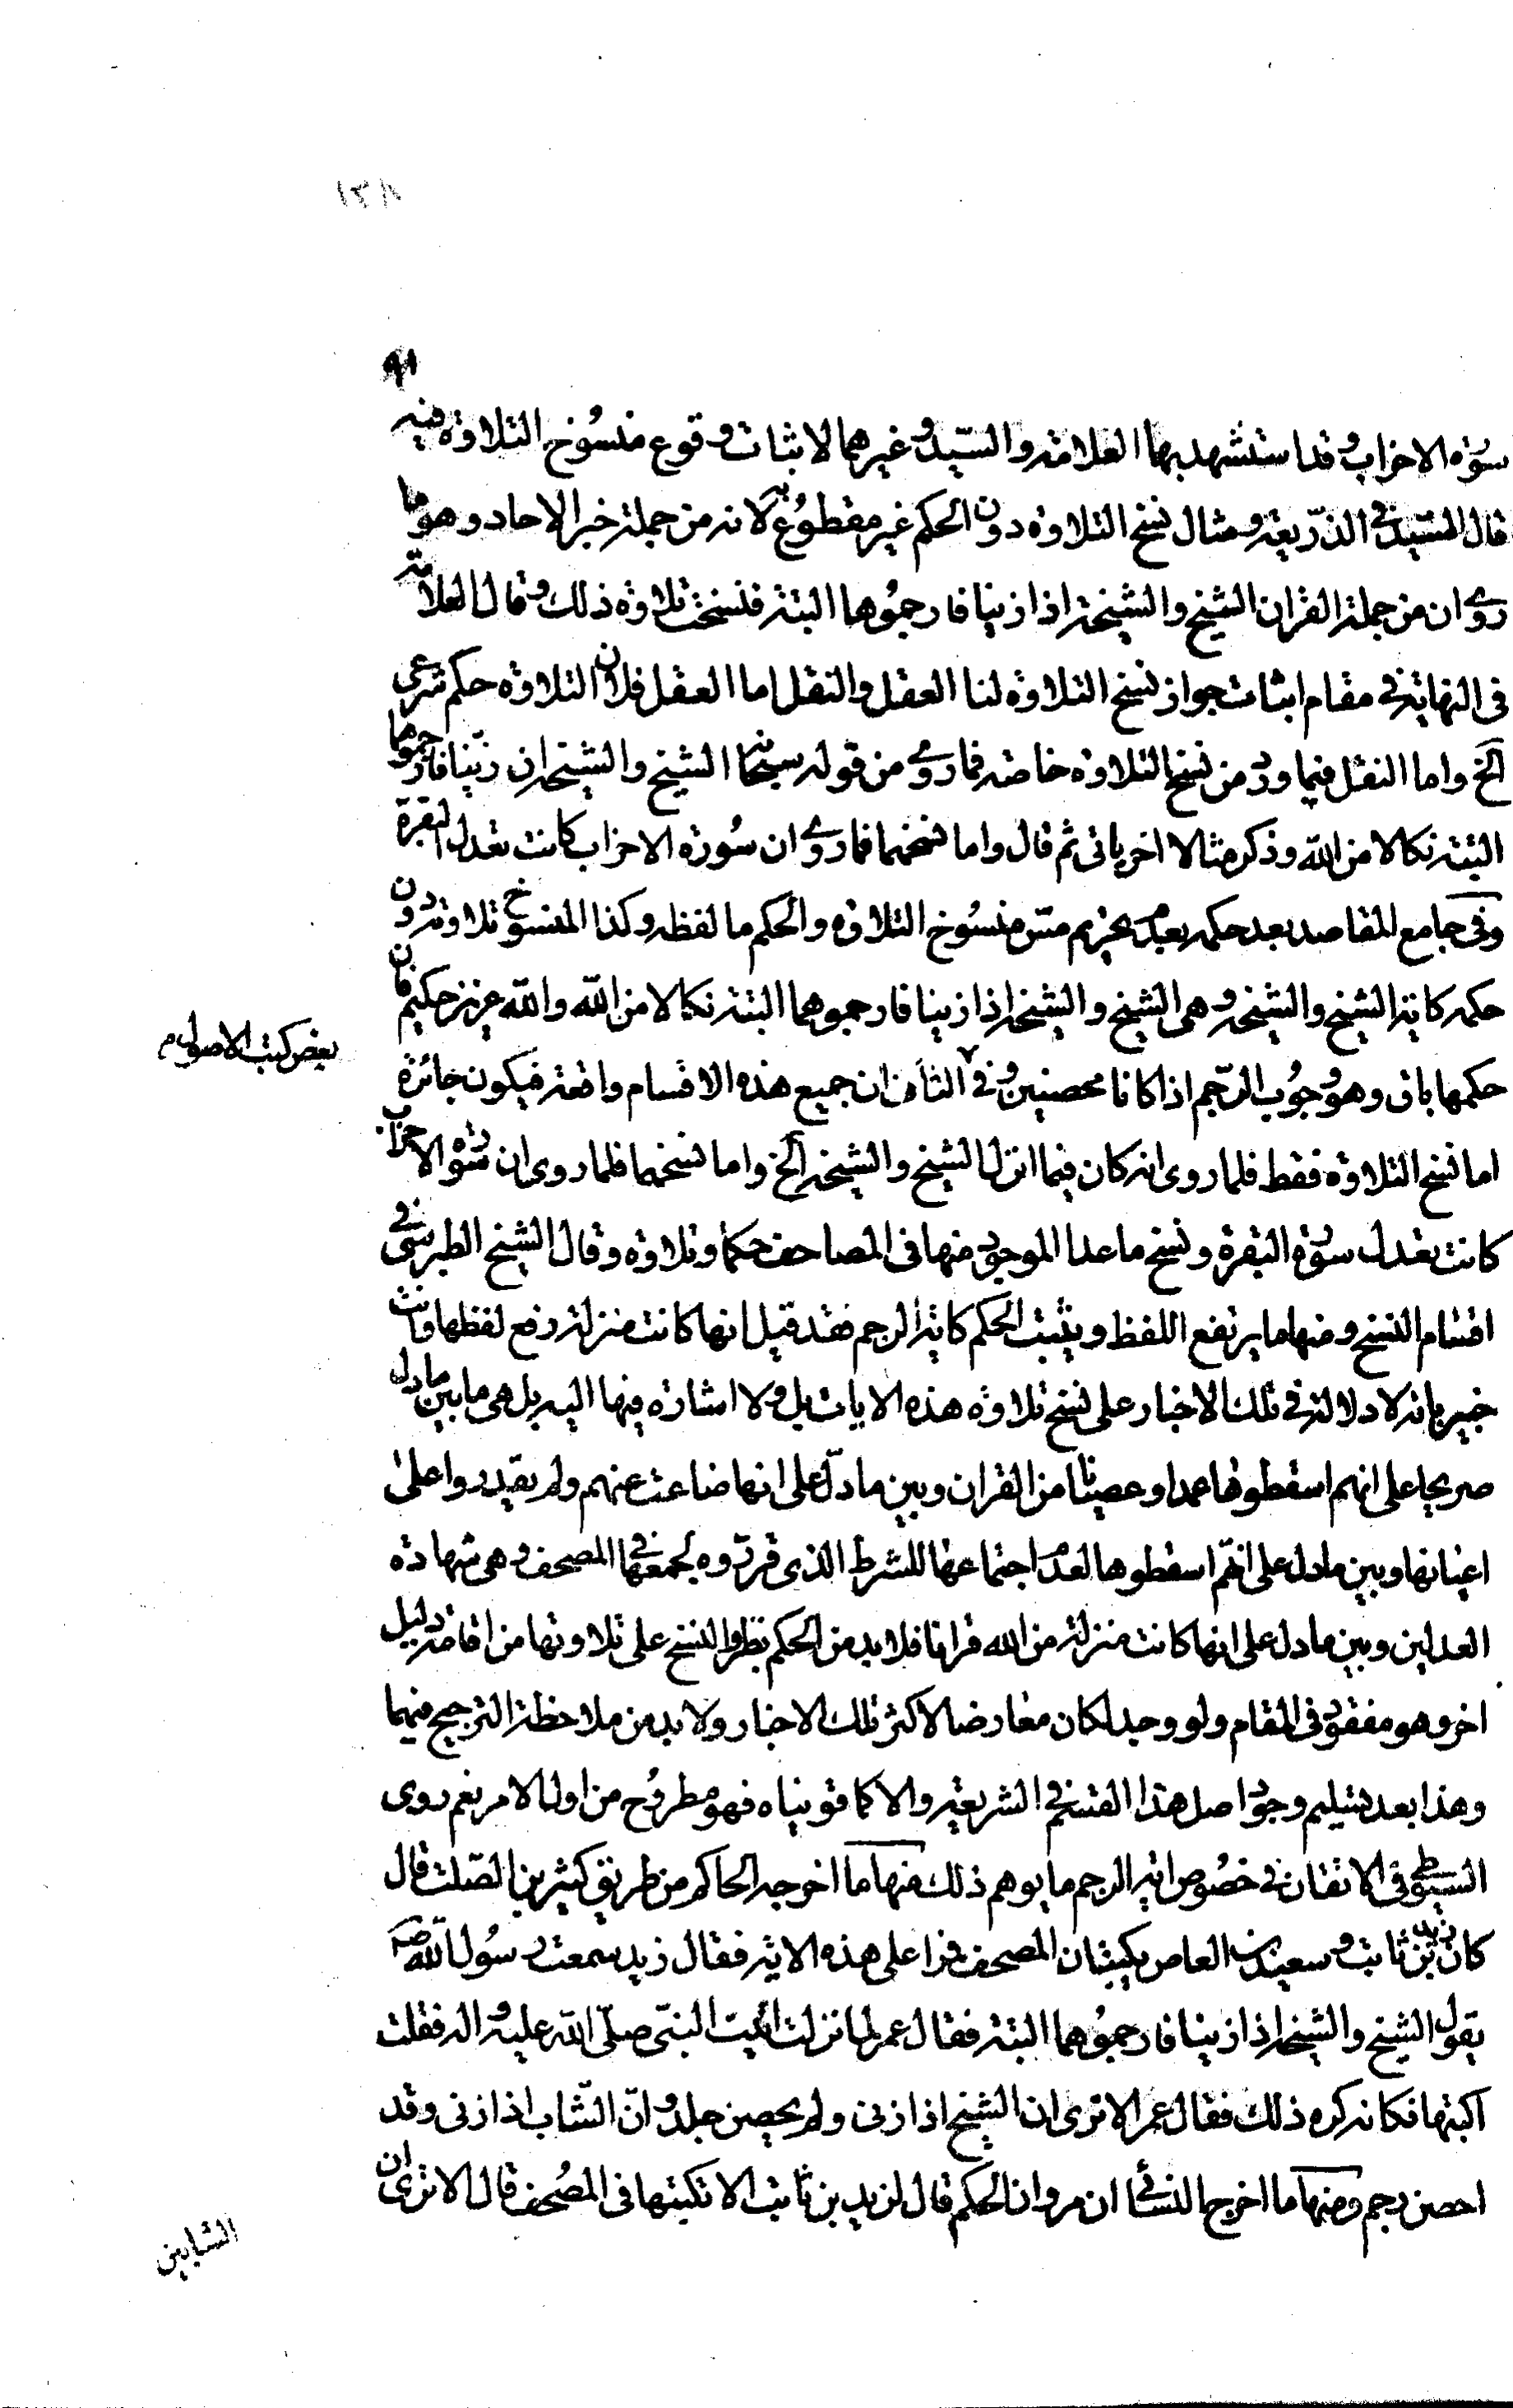 ١٣٨
٩١
سورة الاحزاب وقد استشهد بها العلامة والسيد وغيرهما لاثبات وقوع منسوخ التلاوة فيه
قال السيد في الذريعة ومثال نسخ التلاوة دون الحكم غير مقطوع به لانه من جملة خبر الاحاد وهو ما
روى ان من جملة القران الشيخ والشيخة اذا زنيا فارجموهما البتة فنسخت تلاوة ذلك وقال العلامة
فى النهاية في مقام اثبات جواز نسخ التلاوة لنا العقل والنقل اما العقل فلان التلاوة حكم شرعى
الخ واما النقل فيما ورد من نسخ التلاوة خاصة فما روى من قوله سبحانه الشيخ والشيخة ان زنيا فارجموهما
البتة نكالا من الله وذكر مثالا اخر ياتى ثم قال واما نسخهما فما روى ان سورة الاحزاب كانت تعدل البقرة
وفى جامع المقاصد بعد حكمه بعدم تحريم مس منسوخ التلاوة والحكم ما لفظه وكذا المنسوخ تلاوته دون
حكمه كاية الشيخ والشيخة وهى الشيخ والشيخة اذا زنيا فارجموهما البتة نكالا من الله والله عزيز حكيم فان
حكمها باق وهو وجوب الرجم اذا كانا محصنين وفى الثامن ان جميع هذه الاقسام واقعة فيكون جائزة
بعض كتب الاصول م
اما نسخ التلاوة فقط فلما روى انه كان فيما انزل الشيخ والشيخة الخ واما نسخهما فلما روى ان سورة الاحزاب
كانت تعدل سورة البقرة ونسخ ما عدا الموجود منها فى المصاحف حكما وتلاوة وقال الشيخ الطبرسى فى
اقسام النسخ ومنها ما يرتفع اللفظ ويثبت الحكم كاية الرجم فقد قيل انها كانت منزلة رفع لفظها وانت
خبير بانه لا دلالة في تلك الاخبار على نسخ تلاوة هذه الايات بل ولا اشارة فيها اليه بل هى ما بين ما دل
صريحا على انهم اسقطوها عمدا وعصيانا من القران وبين ما دل على انها ضاعت عنهم ولم يقدروا على
اتيانها وبين ما دل على انهم اسقطوها لعدم اجتماعها للشرط الذى قرروه لجمعها فى المصحف وهى شهادة
العدلين وبين ما دل على انها كانت منزلة من الله قرانا فلا بد من الحكم بطرو النسخ على تلاوتها من اقامة دليل
اخر وهو مفقود فى المقام ولو وجد لكان معارضا لاكثر تلك الاخبار ولا بد من ملاحظة الترجيح فيهما
وهذا بعد تسليم وجود اصل هذا القسم فى الشريعة والا كما قويناه فهو مطروح من اول الامر نعم روى
السيوطى فى الاتقان في خصوص اية الرجم ما يوهم ذلك منها ما اخرجه الحاكم من طريق كثير بن الصلت قال
كان زيد بن ثابت وسعيد بن العاص يكتبان المصحف فمرا على هذه الاية فقال زيد سمعت رسول الله ص
يقول الشيخ والشيخة اذا زنيا فارجموهما البتة فقال عمر لما نزلت اتيت النبى صلى الله عليه واله فقلت
اكتبها فكانه كره ذلك فقال عمر الا ترى ان الشيخ اذا زنى ولم يحصن جلد وان الشاب اذا زنى وقد
احصن رجم ومنها ما اخرج النسائى ان مروان الحكم قال لزيد بن ثابت الا تكتبها فى المصحف قال الا ترى ان
الشابين